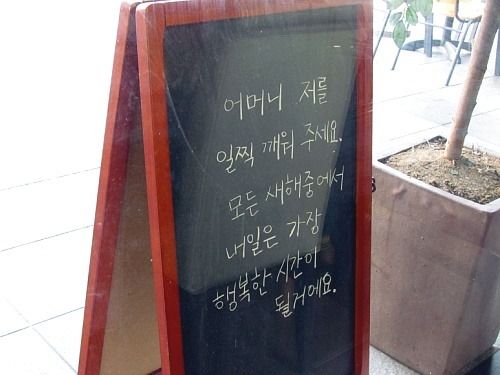 어머니 저를
일찍 깨워 주세요.
모든 새해중에서
내일은 가장
행복한 시간이
될거에요.